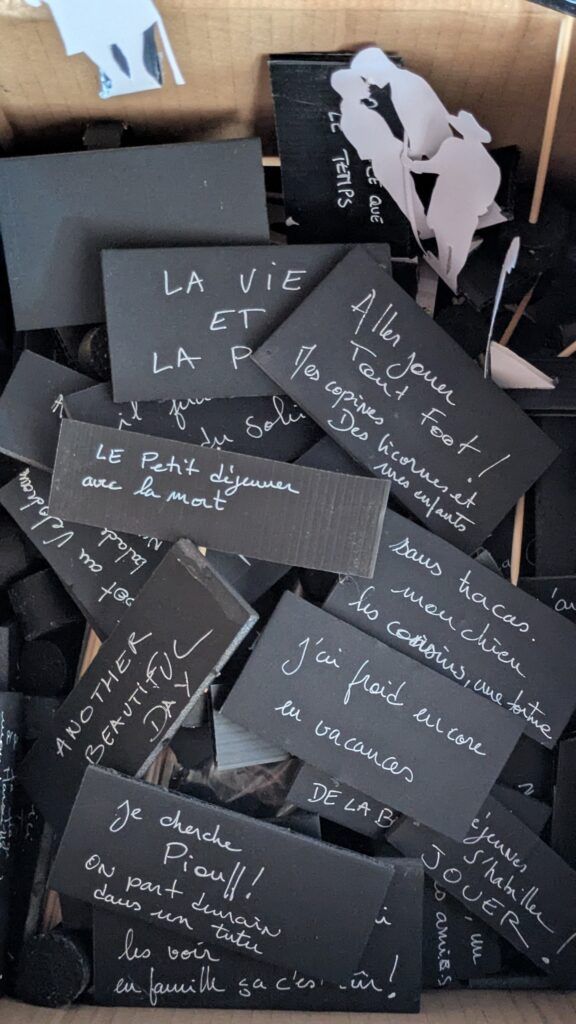 CE QUE
LE TEMPS
LA VIE
ET
LA P
Aller jouer
Tout Foot!
Mes copines
Des licornes, et
mes enfants
du Soli
LE Petit déjeuner
avec la mort
au Vélo
balade
sans tracas.
mon chien
les cousins, une tortue
ANOTHER
BEAUTIFUL
DAY
J'ai froid encore
en vacances
DE LA B
éjeuner
S'habiller
JOUER!
je cherche
Piou!!!
on part demain
dans un tutu
les voir
en famille ça c'est
amies